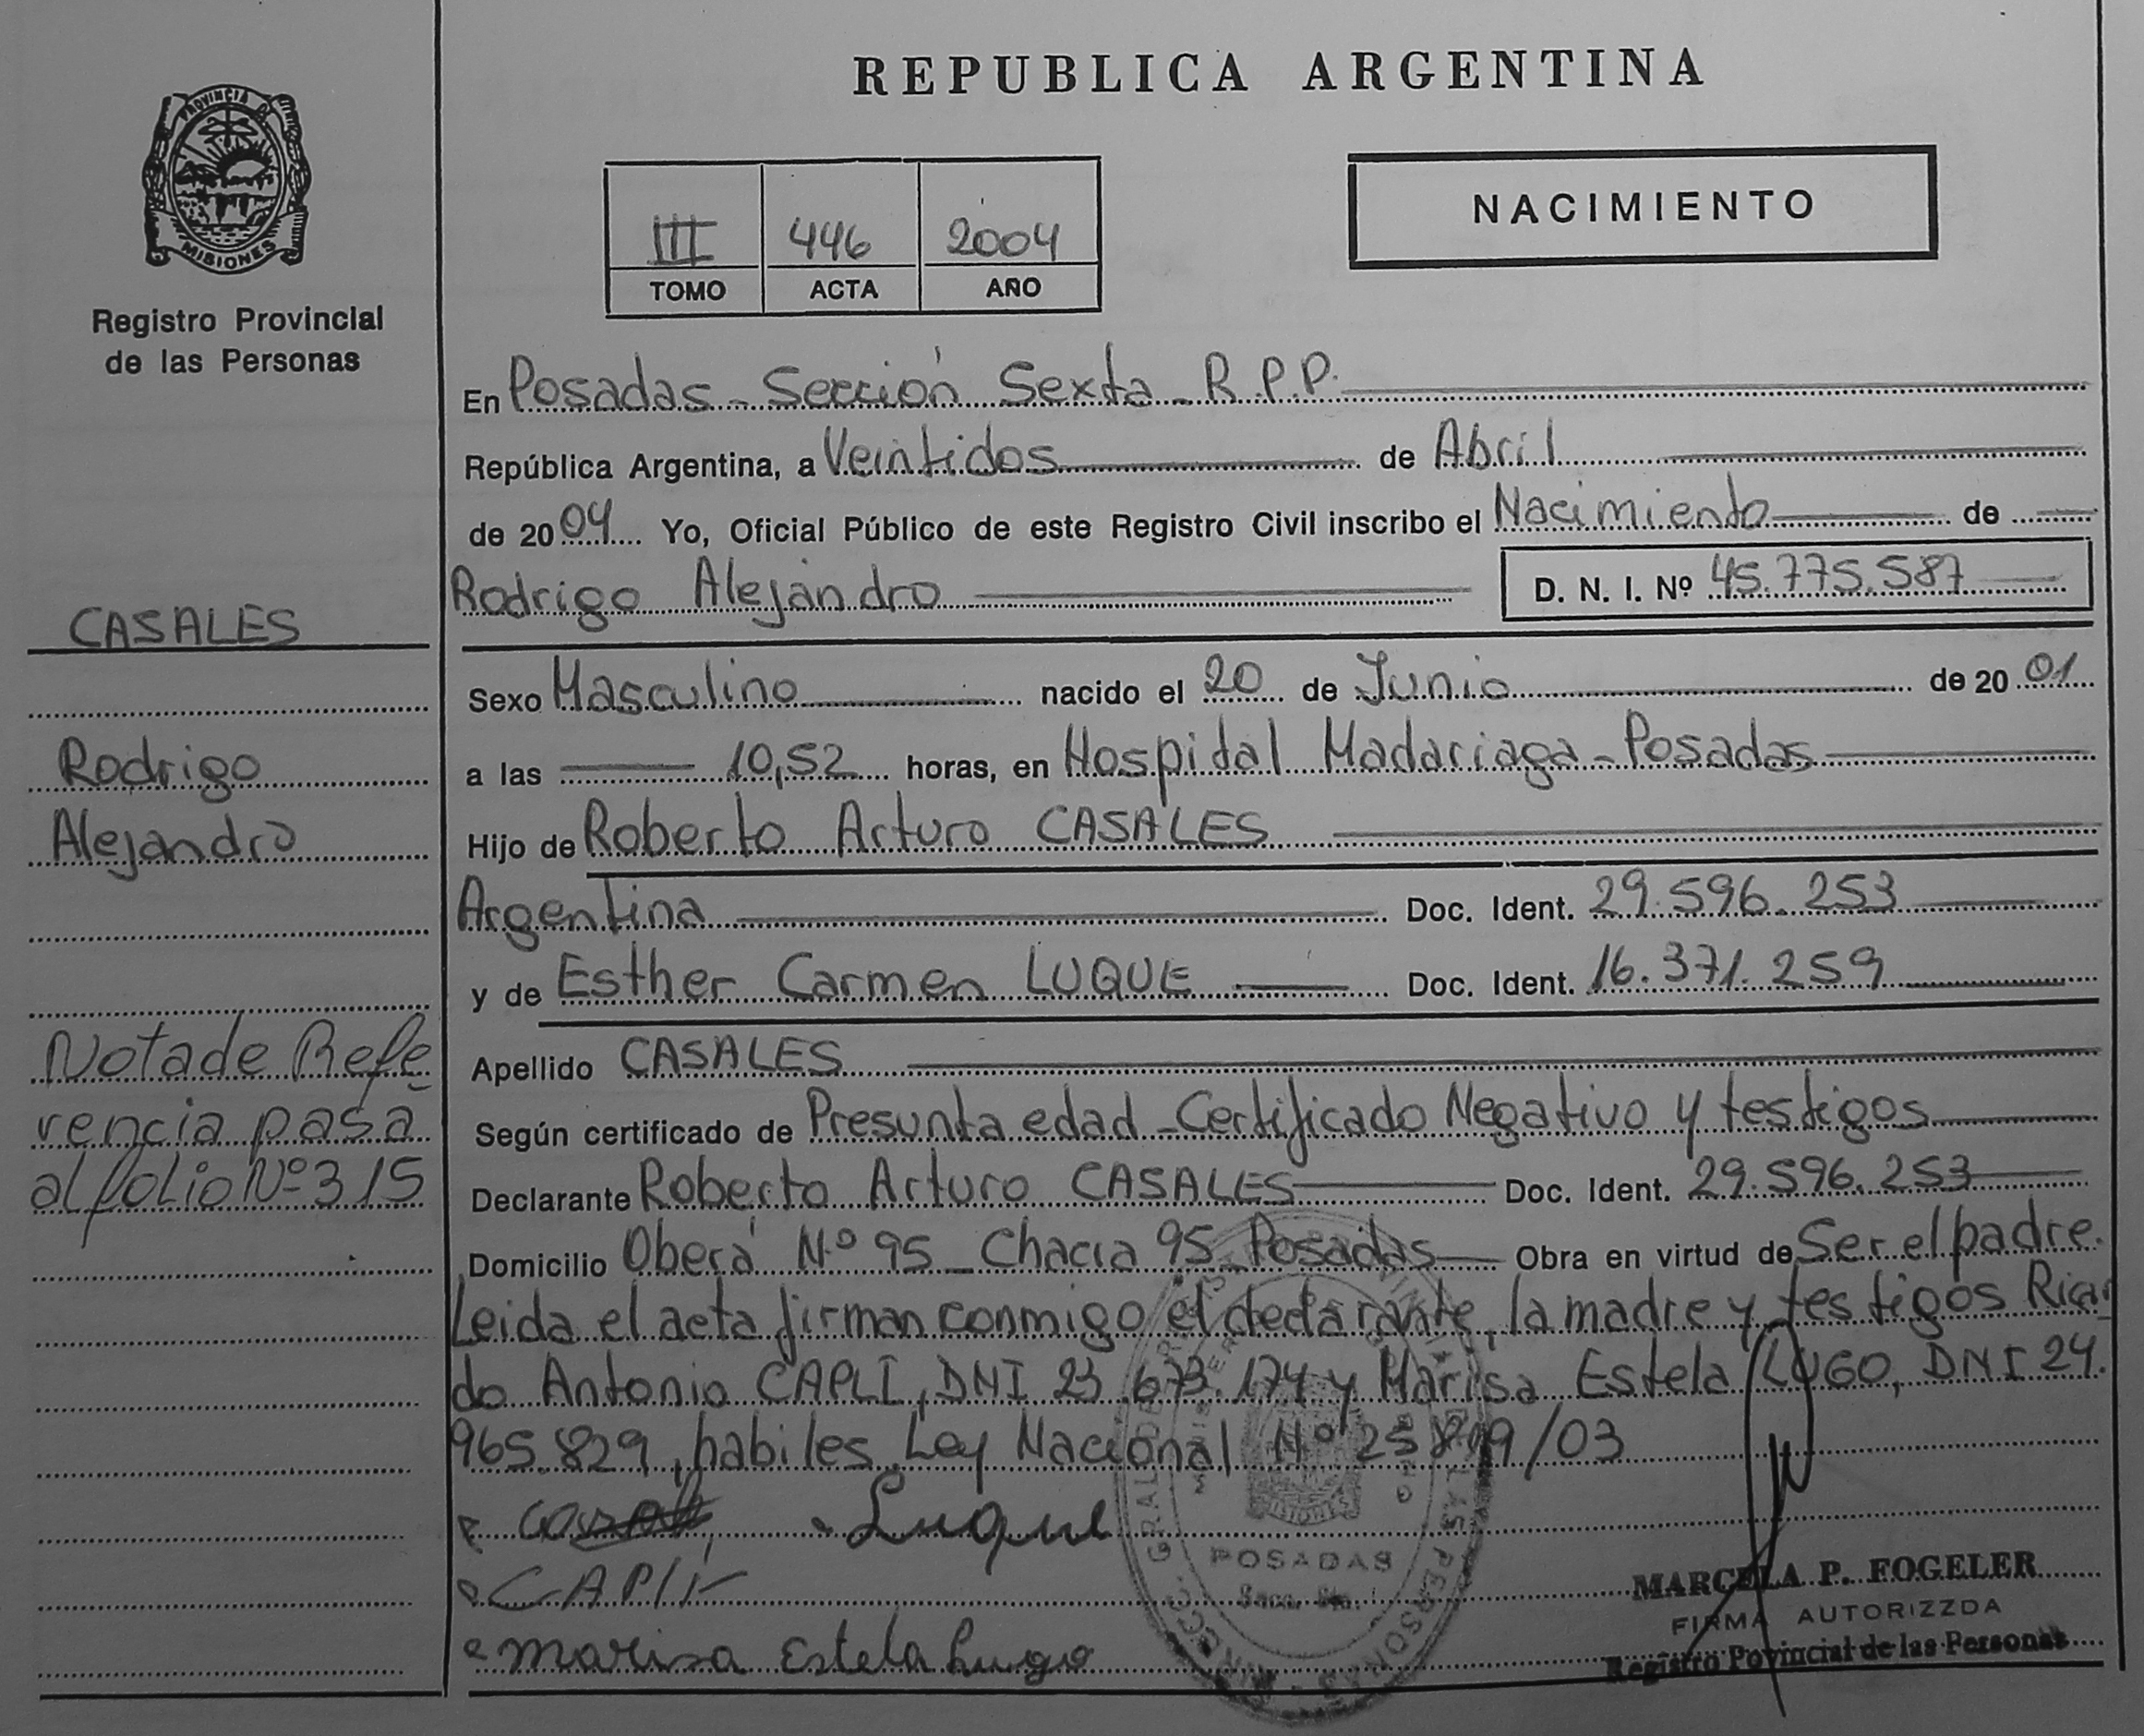 PROVINCIA DE
MISIONES
Registro Provincial
de las Personas
CASALES
Rodrigo
Alejandro
Nota de Refe
rencia pasa
al folio Nº 315
REPUBLICA ARGENTINA
III 446 2004
TOMO ACTA AÑO
NACIMIENTO
En Posadas - Sección Sexta - R.P.P.
República Argentina, a Veintidos de Abril
de 2004 Yo, Oficial Público de este Registro Civil inscribo el Nacimiento de
Rodrigo Alejandro D. N. I. Nº 45.775.587
Sexo Masculino nacido el 20 de Junio de 2001
a las 10,52 horas, en Hospital Madariaga - Posadas
Hijo de Roberto Arturo CASALES
Argentina Doc. Ident. 29.596.253
y de Esther Carmen LUQUE Doc. Ident. 16.371.259
Apellido CASALES
Según certificado de Presunta edad - Certificado Negativo y testigos
Declarante Roberto Arturo CASALES Doc. Ident. 29.596.253
Domicilio Oberá Nº 95 - Chacra 95 - Posadas Obra en virtud de Ser el padre.
Leida el acta firman conmigo el declarante, la madre y testigos Ricar
do Antonio CAPLI, DNI 23.673.174 y Marisa Estela LUGO, DNI 24.
965.829, habiles Ley Nacional Nº 25819/03
Luque
CAPLI
Marisa Estela Lugo
POSADAS
MARCELA P. FOGELER
FIRMA AUTORIZZDA
Registro Povincial de las Personas